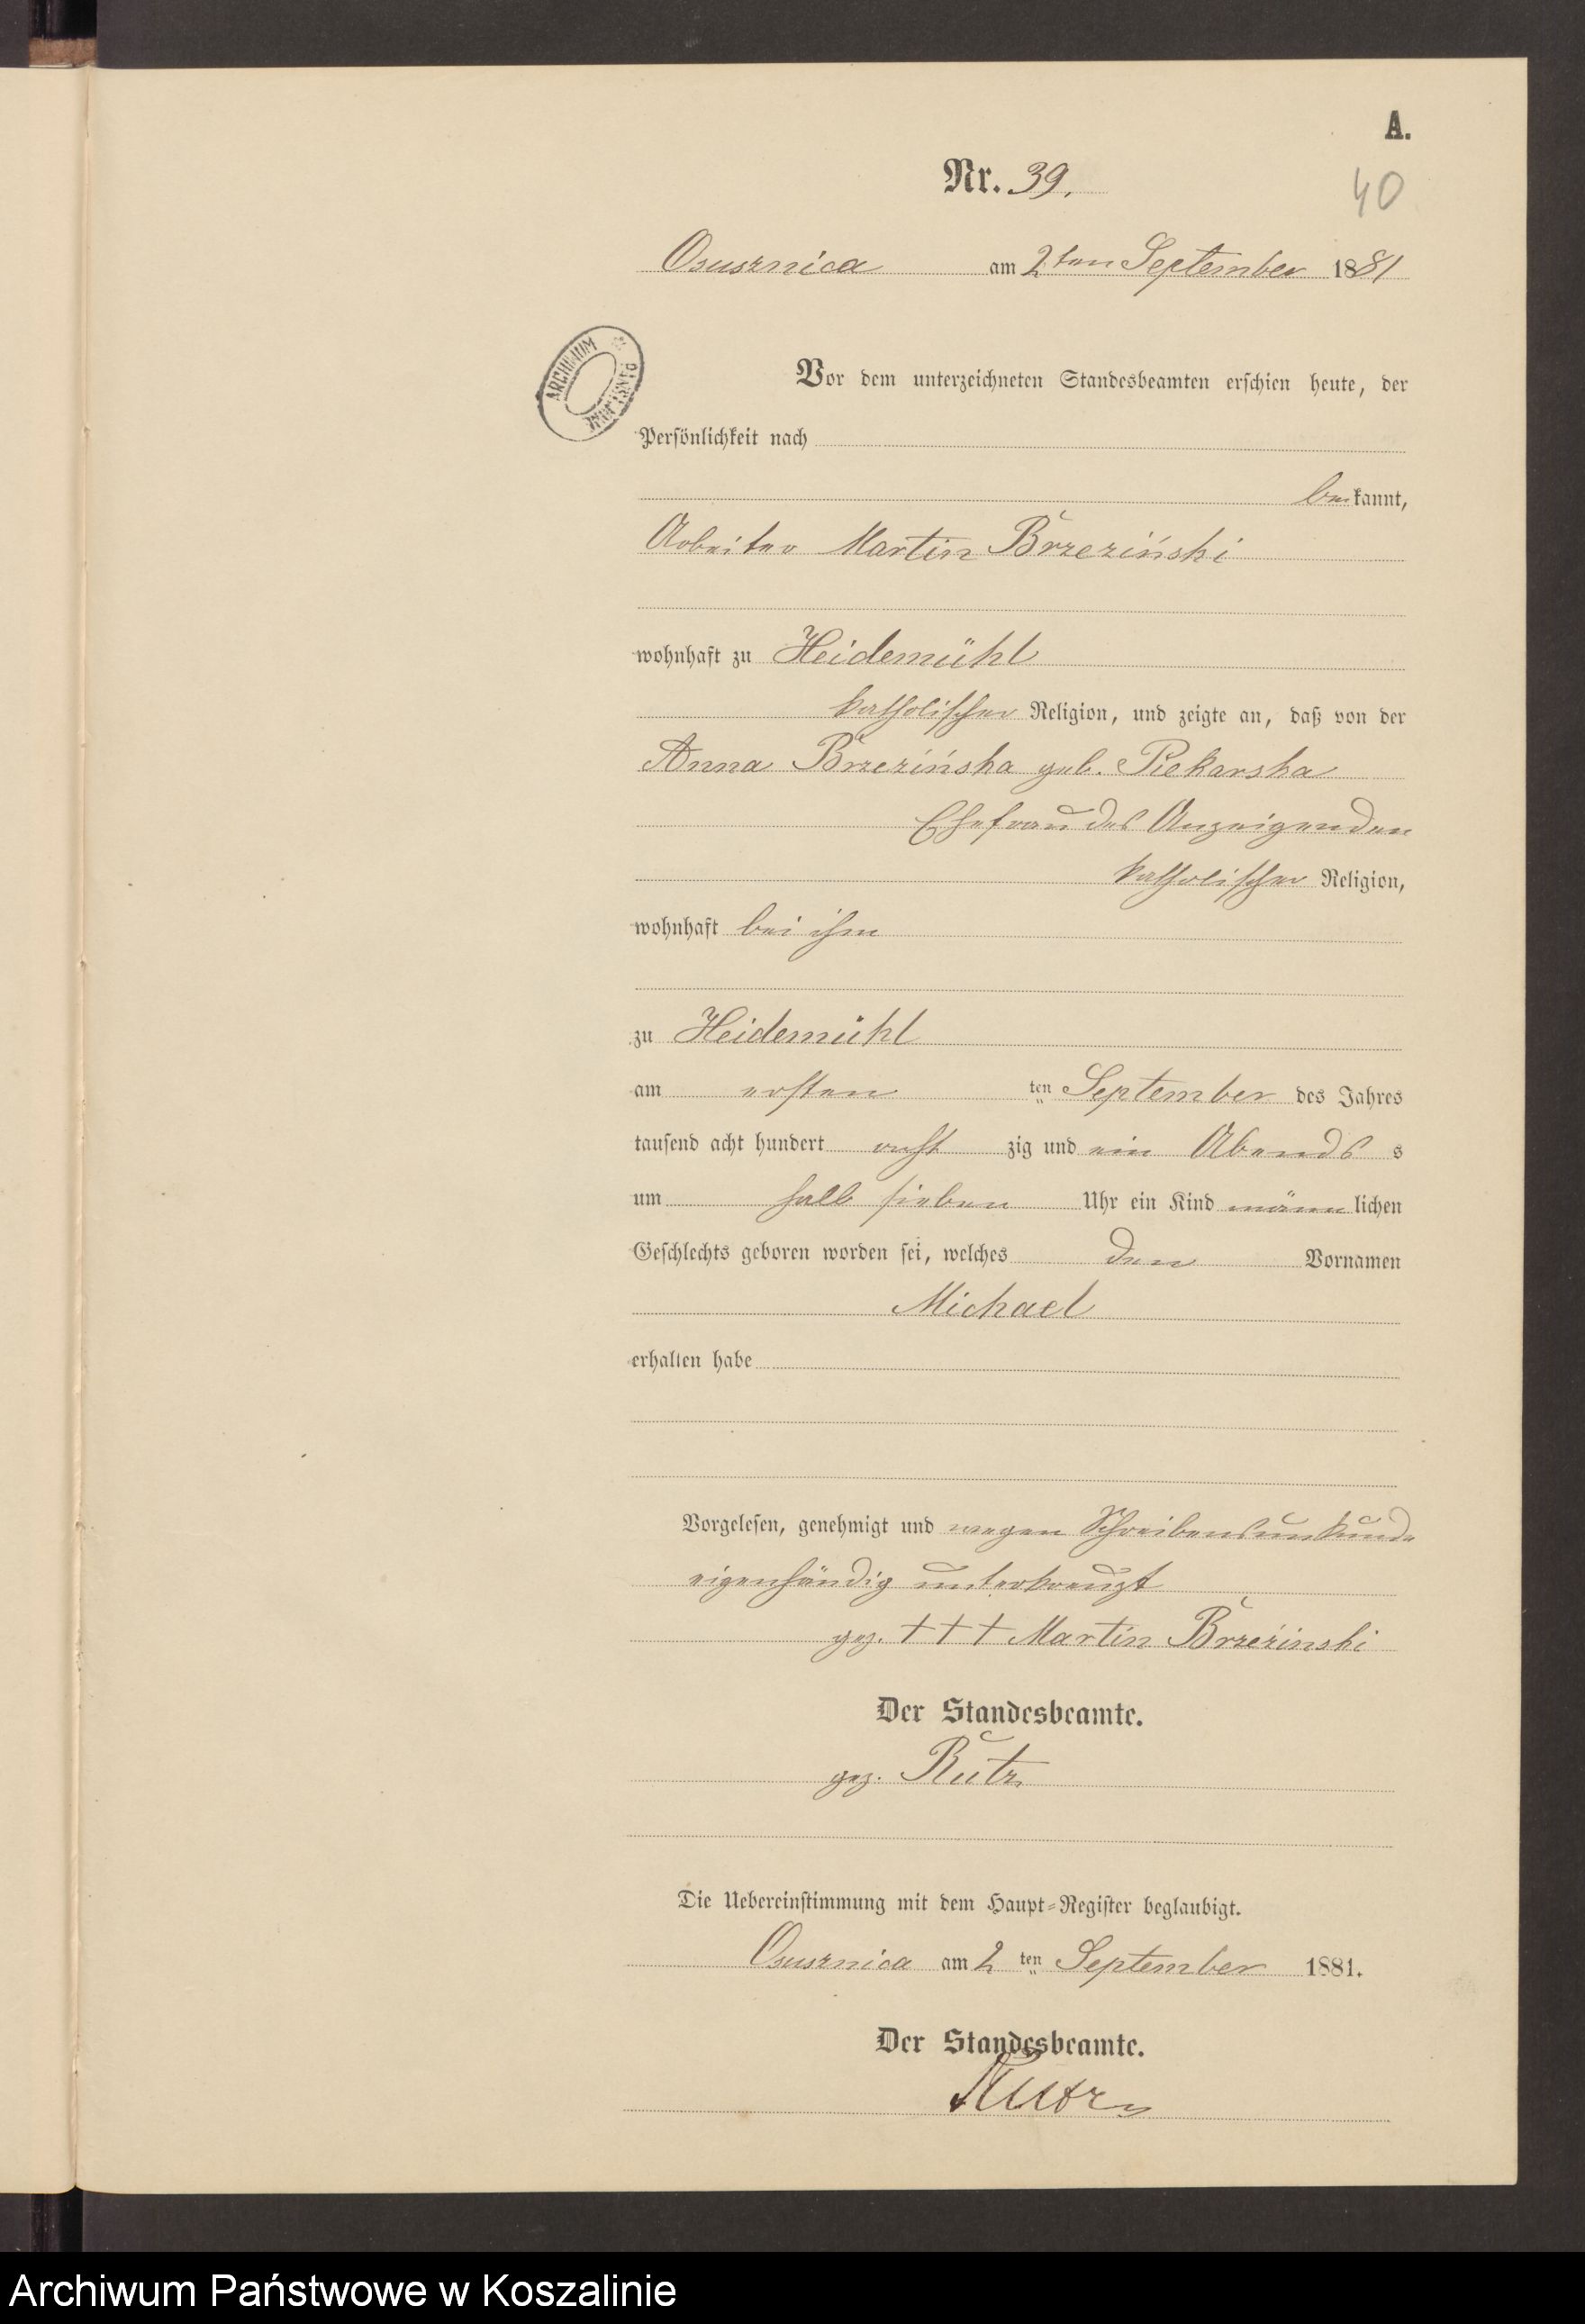 A.
Nr. 39.
40
Osusznica am 2ten September 1881
ARCHIWUM PAŃSTWOWE
Vor dem unterzeichneten Standesbeamten erschien heute, der
Persönlichkeit nach
bekannt,
Arbeiter Martin Brzeziński
wohnhaft zu Heidemühl
katholischer Religion, und zeigte an, daß von der
Anna Brzezińska geb. Piekarska
Ehefrau des Anzeigenden
katholischer Religion,
wohnhaft bei ihm
zu Heidemühl
am ersten ten September des Jahres
tausend acht hundert acht zig und ein Abends s
um halb sieben Uhr ein Kind männ lichen
Geschlechts geboren worden sei, welches den Vornamen
Michael
erhalten habe
Vorgelesen, genehmigt und wegen Schreibensunkunde
eigenhändig unterkreuzt
gez. +++ Martin Brzeżinski
Der Standesbeamte.
gez. Rutz
Die Uebereinstimmung mit dem Haupt-Register beglaubigt.
Osusznica am 2 ten September 1881.
Der Standesbeamte.
Rutz
Archiwum Państwowe w Koszalinie